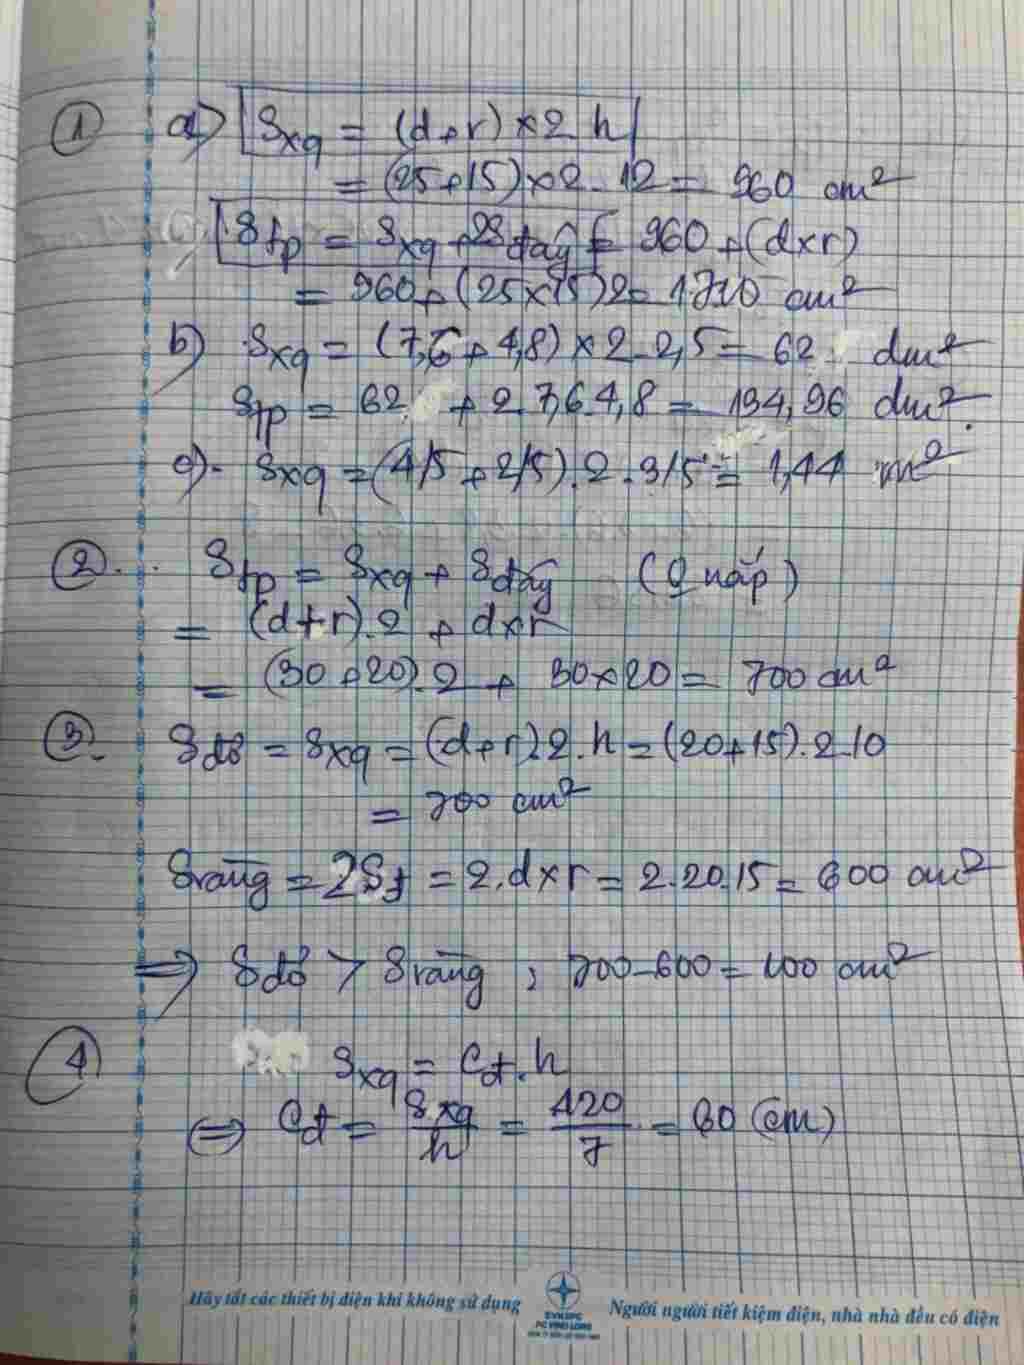 ① a) Sxq = (d+r)×2.h
= (25+15)×2.12 = 960 cm²
Stp = Sxq + 2Sđáy = 960 + (d×r)
= 960 + (25×15)2 = 1710 cm²
b) Sxq = (7,6 + 4,8) × 2.2,5 = 62 dm²
Stp = 62 + 2.7,6.4,8 = 134,96 dm².
c) Sxq = (4/5 + 2/5).2.3/5 = 1,44 m²
②. Stp = Sxq + Sđáy (0 nắp)
= (d+r).2 + d×r
= (30+20).2 + 30×20 = 700 cm²
③. Sđỏ = Sxq = (d+r).2.h = (20+15).2.10
= 700 cm²
Svàng = 2Sđ = 2.d×r = 2.20.15 = 600 cm²
⇒ Sđỏ > Svàng ; 700-600 = 100 cm²
④ Sxq = Cđ.h
⇔ Cđ = Sxq/h = 420/7 = 60 (cm)
Hãy tắt các thiết bị điện khi không sử dụng
EVNSPC
PC VINH LONG
Người người tiết kiệm điện, nhà nhà đều có điện